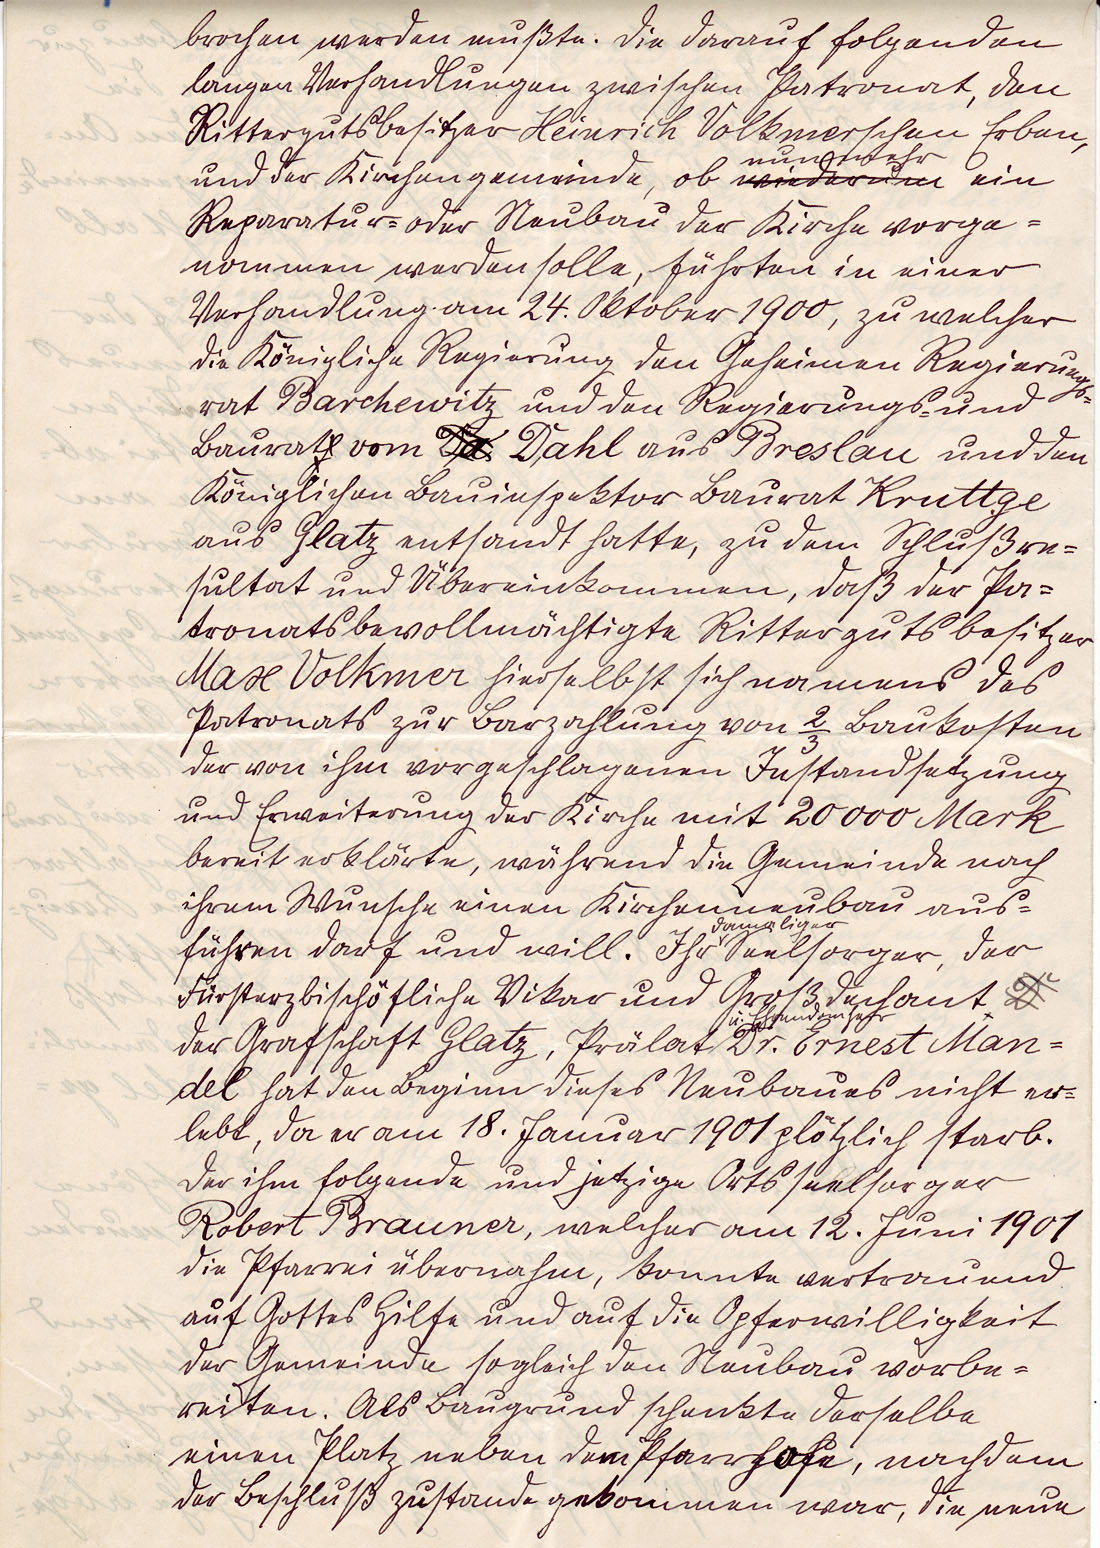 brochen werden mußte. Die darauf folgenden
langen Verhandlungen zwischen Patronat, den
Rittergutsbesitzer Heinrich Volkmerschen Erben,
nunmehr
und der Kirchengemeinde, ob wiederum ein
Reparatur= oder Neubau der Kirche vorge=
nommen werden solle, führten in einer
Verhandlung am 24. Oktober 1900, zu welcher
die Königliche Regierung den Geheimen Regierungs=
rat Barchewitz und den Regierungs= und
Baurat vom Dahl aus Breslau und den
Königlichen Bauinspektor Baurat Kruttge
aus Glatz entsandt hatte, zu dem Schlußre=
sultat und Übereinkommen, daß der Pa=
tronatsbevollmächtigte Rittergutsbesitzer
Max Volkmer hierselbst sich namens des
Patronats zur Barzahlung von 2/3 Baukosten
der von ihm vorgeschlagenen Instandsetzung
und Erweiterung der Kirche mit 20 000 Mark
bereit erklärte, während die Gemeinde nach
ihrem Wunsche einen Kirchenneubau aus=
damaliger
führen darf und will. Ihr Seelsorger, der
Fürsterzbischöfliche Vikar und Großdechant
u. Ehrendomherr
der Grafschaft Glatz, Prälat Dr. Ernest Man=
del hat den Beginn dieses Neubaues nicht er=
lebt, da er am 18. Januar 1901 plötzlich starb.
Der ihm folgende und jetzige Ortsseelsorger
Robert Brauner, welcher am 12. Juni 1901
die Pfarrei übernahm, konnte vertrauend
auf Gottes Hilfe und auf die Opferwilligkeit
der Gemeinde sogleich den Neubau vorbe=
reiten. Als Baugrund schenkte derselbe
einen Platz neben dem Pfarrhofe, nachdem
der Beschluß zustande gekommen war, die neue